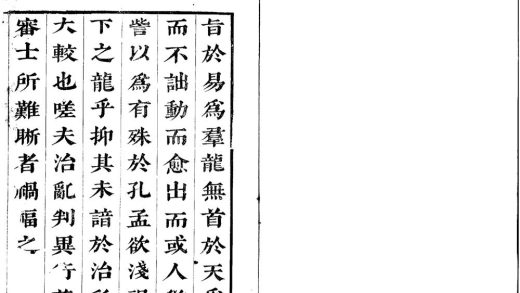 旨於易爲羣龍無首於天
而不詘動而愈出而或人
訾以爲有殊於孔孟欲淺
下之龍乎抑其未諳於治
大較也嗟夫治亂判異行
審士所難晣者禍福之